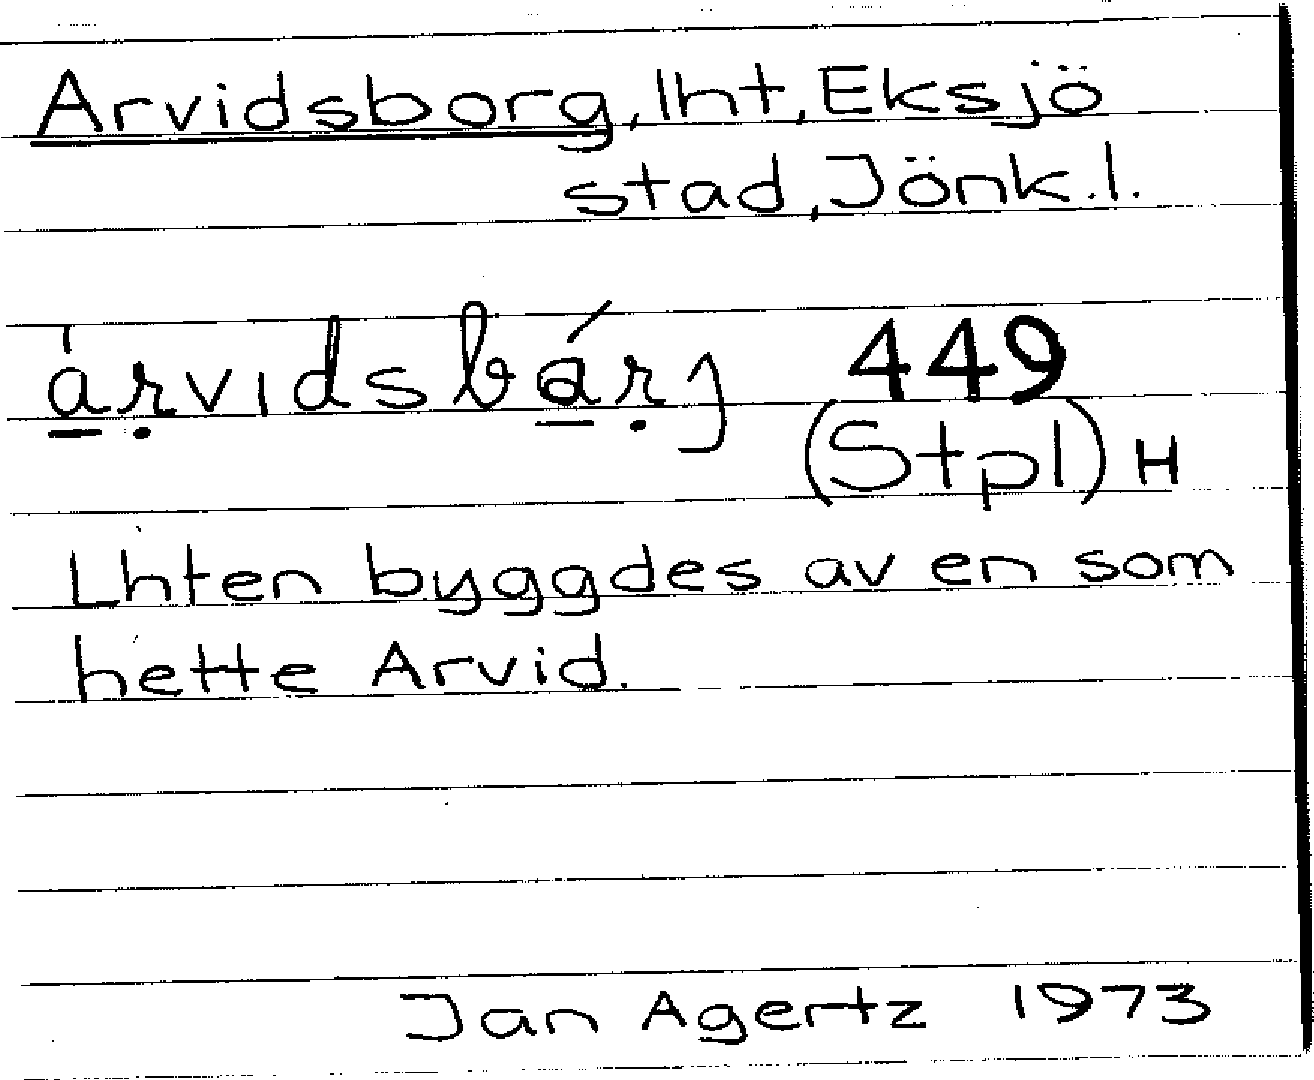 Arvidsborg, lht, Eksjö
stad, Jönk.l.
àṟ̣vidsbáṟ̣j 449
(Stpl) H
Lhten byggdes av en som
hette Arvid.
Jan Agertz 1973